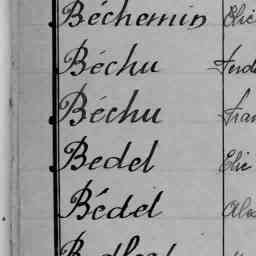 Béchemin Elie
Béchu Ferd
Béchu Fran
Bedel Elie
Bédel Alex